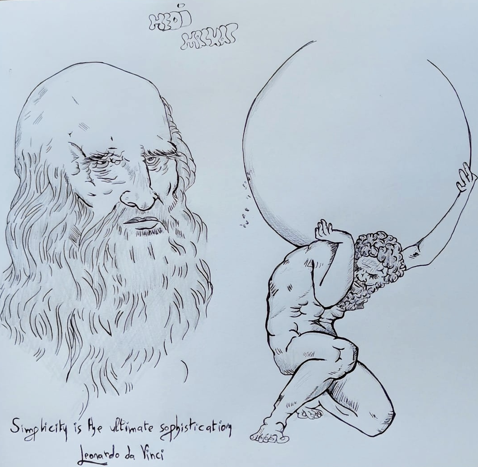 HEDI
Simplicity is the ultimate sophistication
Leonardo da Vinci